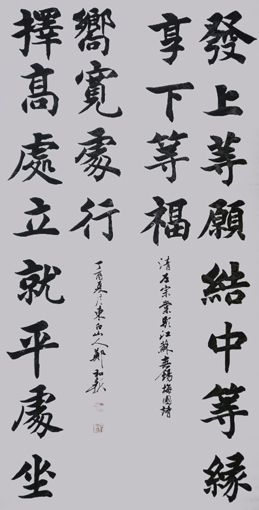 發上等願結中等緣
享下等福
清左宗棠題江蘇無錫梅園詩
擇高處立就平處坐
嚮寬處行
丁酉冬月東白山人鄭